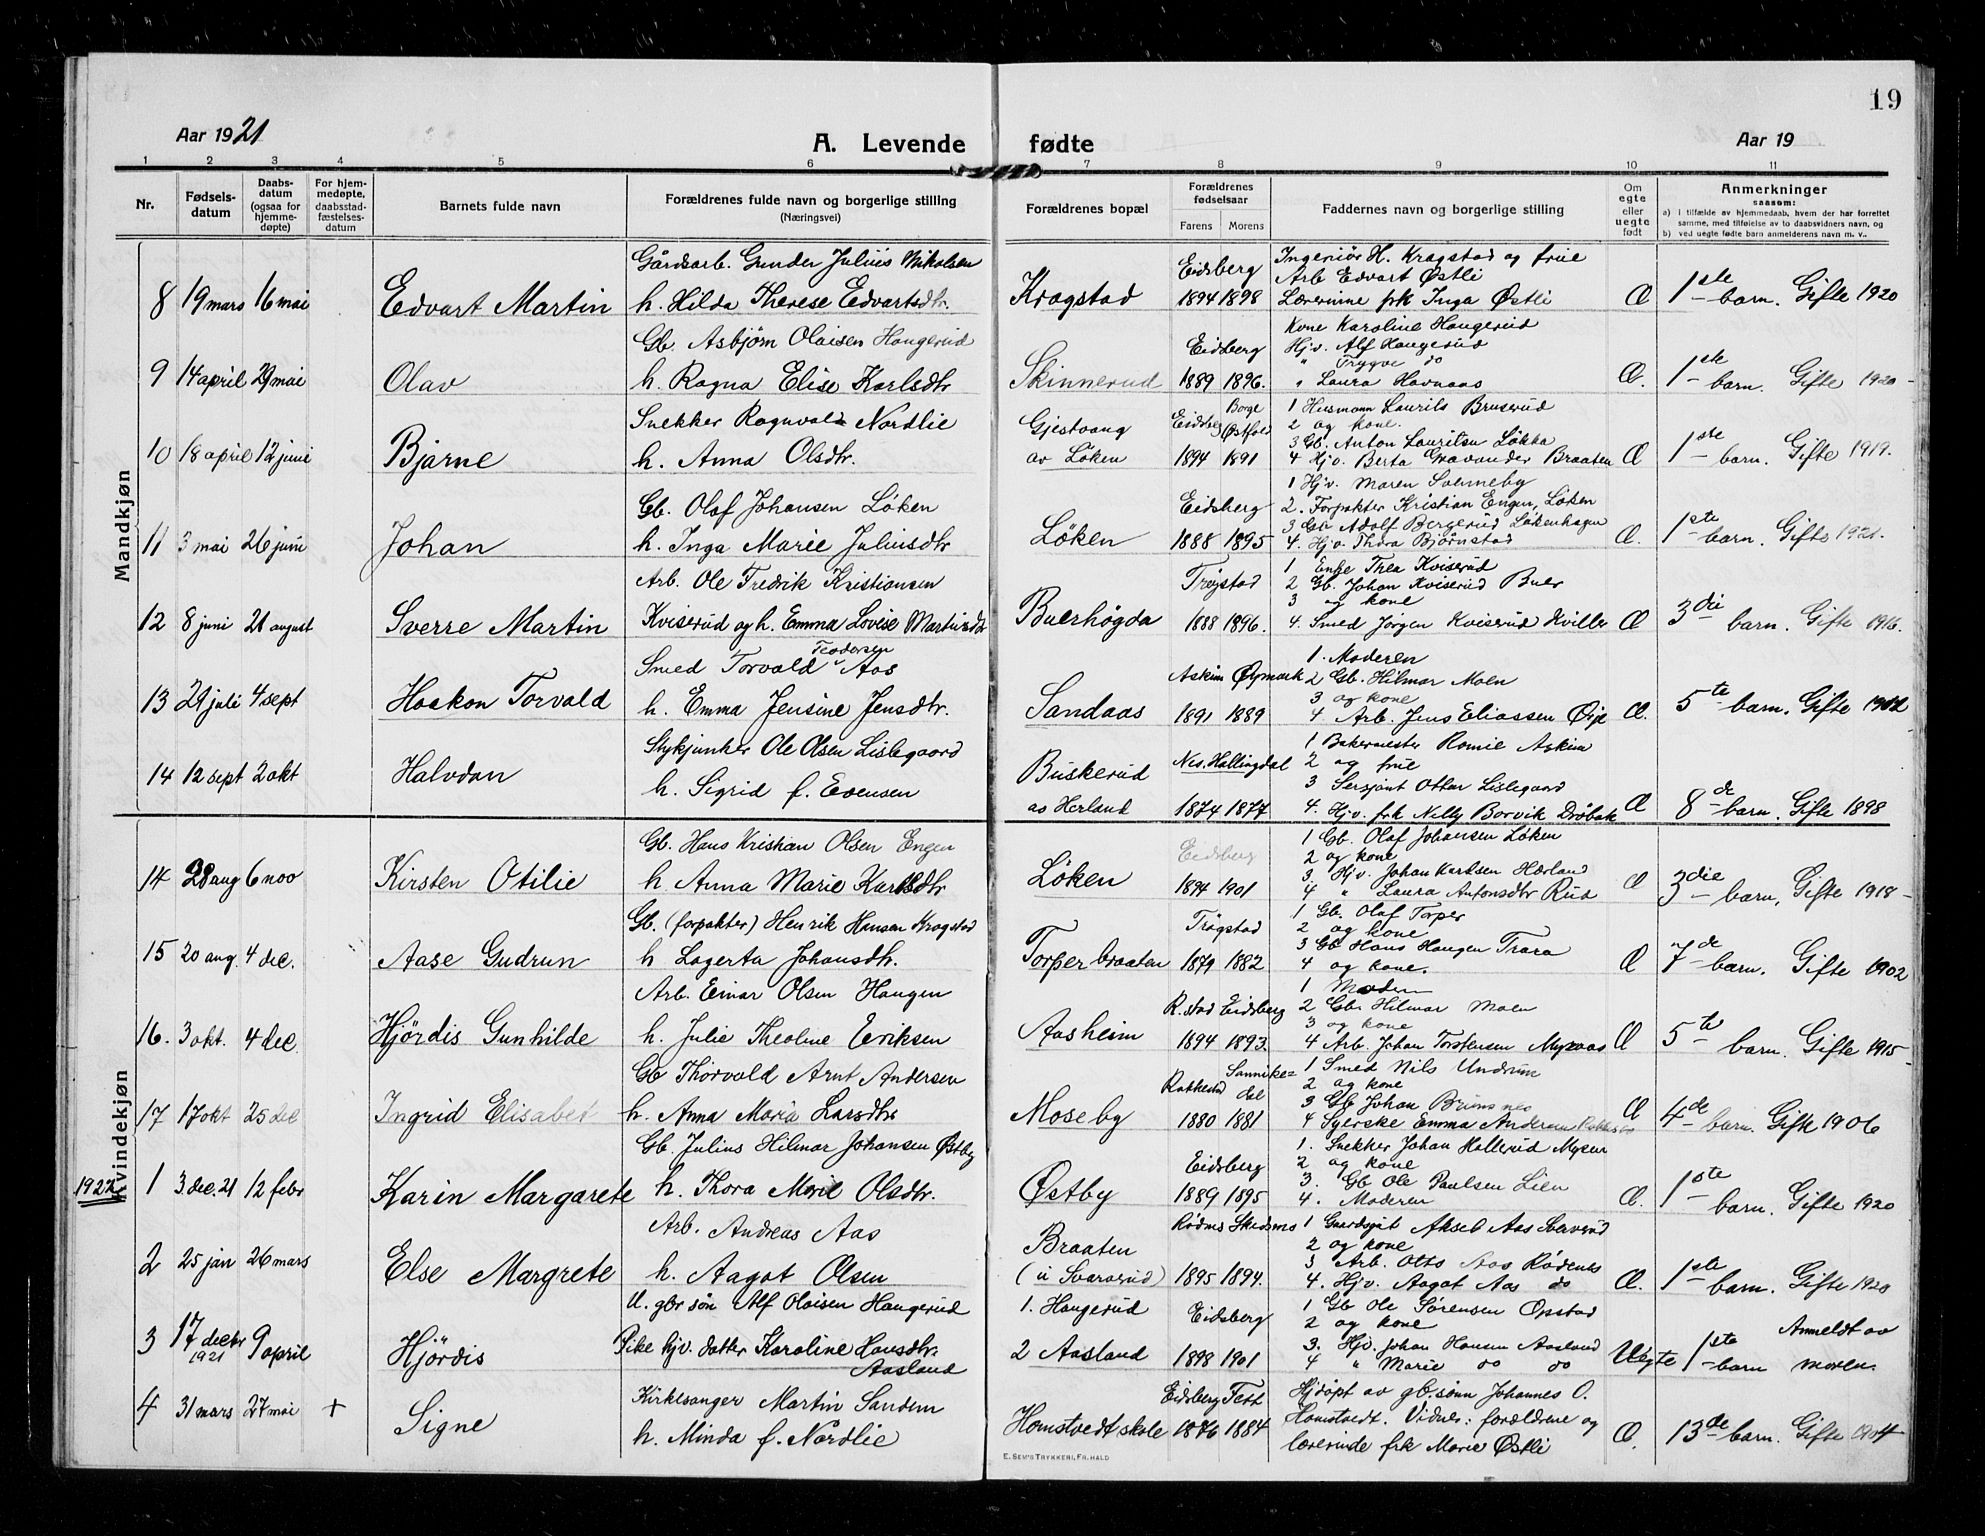 19
Aar 1921
A. Levende fødte
Aar 19
1 2 3 4 5 6 7 8 9 10 11
Nr.
Fødsels-
datum
Daabs-
datum
(ogsaa for
hjemme-
døpte)
For hjem-
medøpte,
daabsstad-
fæstelses-
datum
Barnets fulde navn
Forældrenes fulde navn og borgerlige stilling
(Næringsvei)
Forældrenes bopæl
Forældrenes
fødselsaar
Farens Morens
Faddernes navn og borgerlige stilling
Om
egte
eller
uegte
født
Anmerkninger
saasom:
a) i tilfælde av hjemmedaab, hvem der har forrettet
samme, med tilføielse av to daabsvidners navn, og
b) ved uegte fødte barn anmelderens navn m. v..
Mandkjøn
Gårdsarb. Gunder Julius Nikolsen
Eidsberg
Ingeniør H. Kragstad og frue
Arb Edvart Østli
8 19 mars 16 mai Edvart Martin h. Hilda Therese Edvartsdtr. Kragstad 1894 1898 Lærerinne frk Inga Østli Æ 1ste barn. Gifte 1920
Gb. Asbjørn Olaisen Haugerud
Eidsberg
Kone Karoline Haugerud
Hjv. Alf Haugerud
" Trygve do
9 14 april 29 mai Olav h. Ragna Elise Karlsdtr Skinnerud 1889 1896. " Laura Havnaas Æ. 1ste barn. Gifte 1920
Snekker Ragnvald Nordlie
Gjestvang
Eidsberg
Borge Østfold
1 Husmann Laurits Bruserud
2 og kone.
3 Gb. Anton Lauritsen Løkka
10 18 april 12 juni Bjarne h. Anna Olsdtr. av Løken 1894 1891 4 Hjv. Berta Gravander Braaten Æ 1ste barn. Gifte 1919.
Gb. Olaf Johansen Løken
Eidsberg
1 Hjv. Maren Svenneby
2. Forpakter Kristian Engen, Løken
3 Gb Adolf Bergerud Løkenhagen
11 3 mai 26 juni Johan h. Inga Marie Juliusdtr Løken 1888 1895 4. Hjv. Thora Bjørnstad Æ. 1ste barn. Gifte 1921.
Arb. Ole Fredrik Kristiansen
Trøgstad
1 Enke Thea Kviserud
2 Gb. Johan Kviserud Buer
3 og kone
12 8 juni 21 august Sverre Martin Kviserud og h. Emma Lovise Martinsdtr Buerhøgda 1888 1896. 4. Smed Jørgen Kviserud Kviller Æ 3die barn. Gifte 1916.
Smed Torvald Teodorsen Aas
Askim Øymark
1. Moderen
2 Gb. Hilmar Moen
3 og kone
13 29 juli 4 sept Haakon Torvald h. Emma Jensine Jensdtr. Sandaas 1891 1889 4 Arb. Jens Eliassen Æ. 5te barn. Gifte 1912
Stykjunker Ole Olsen Lislegaard
Buskerud
Nes. Hallingdal
1 Bakermester Romie Askim
2 og frue
3 Sersjant Ottar Lislegaard
14 12 sept 2 okt Halvdan h. Sigrid f. Evensen av Herland 1874 1877 4. Hjv. frk Nelly Borvik Drøbak Æ 8de barn. Gifte 1898
Kvindekjøn
Gb. Hans Kristian Olsen Engen
Eidsberg
1 Gb. Olaf Johansen Løken
2 og kone
3. Hjv. Johan Karlsen Hærland
14 28 aug 6 nov Kirsten Otilie h. Anna Marie Karlsdtr Løken 1894 1901 4 " Laura Antonsdtr Rud Æ 3die barn, Gifte 1918
Gb. (forpakter) Henrik Hansen Kragstad
Trøgstad
1 Gb. Olaf Torper
2 og kone
3 Gb Hans Haugen Trara
15 20 aug. 4 dec. Aase Gudrun h Lagerta Johansdtr. Torperbraaten 1879 1882 4 og kone. Æ 7de barn. Gifte 1902
Arb. Einar Olsen Haugen
R.stad Eidsberg
1 Modern
2 Gb. Hilmar Moen
3 og kone
16. 3 okt. 4 dec. Hjørdis Gunhilde h. Julie Theoline Eriksen Aasheim 1894 1893. 4 Arb. Johan Torstensen Æ 5te barn. Gifte 1915
Gb Thorvald Arnt Andersen
Rakkestad
Sannikedal
1 Smed Nils Undrum
2 og kone
3 Gb Johan
17 17 okt 25 dec Ingrid Elisabet h. Anna Maria Larsdtr Moseby 1880 1881 4 Syerske Emma Andersen Æ 4de barn. Gifte 1906
Gb. Julius Hilmar Johansen Østby
Eidsberg
1. Snekker Johan Hallerud Mysen
2 og kone
3. Gb Ole Paulsen Lien
1922 1 3 dec. 21 12 febr Karin Margarete h. Thora Marie Olsdtr. Østby 1889 1895 4. Moderen Æ. 1ste barn. Gifte 1920
Arb. Andreas Aas
Braaten
Rødnes Skedsmo
1 Gaardsgut Aksel Aas Svarverud
2 og kone
3 Arb. Otto Aas Rødenes
2 25 jan 26 mars Else Margrete h. Aagot Olsen (u Svarverud) 1895 1894. 4. Hjv. Aagot Aas do Æ. 1ste barn. Gifte 1920
U. gbr søn Alf Olaisen Haugerud
1. Haugerud
Eidsberg
1 Gb Ole Sørensen Opstad
2 og kone
Anmeldt av
3 17 decbr 1921 9 april Hjørdis Pike hjv. datter Karoline Hansdtr. Aasland 2 Aasland 1898 1901 3. Hjv. Johan Hansen Aasland
4 " Marie do do Uegte 1ste barn moren.
Kirkesanger Martin Sandem
Eidsberg Fett
Hjdøpt av gb.sønn Johannes O.
Homstvedt. Vidner: forældrene og
4 31 mars 27 mai + Signe h. Minda f. Nordlie Homstvedt skole 1876 1884 lærerinde frk Marie Østli Æ. 13de barn. Gifte 1904
E. SEM'S TRYKKERI, FR. HALD